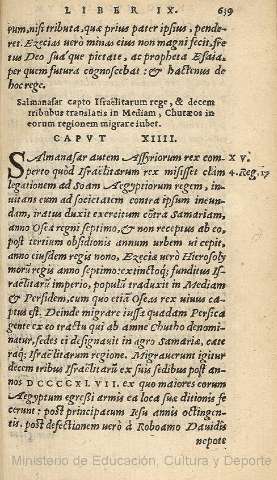 LIBER IX. 639
rum, nisi tributa, quæ prius pater ipsius, pende-
ret. Ezecias verò minas eius non magni fecit, fre
tus Deo suáque pietate, ac propheta Esaia,
per quem futura cognoscebat: & hactenus de
hoc rege.
Salmanasar capto Israëlitarum rege, & decem
tribubus translatis in Mediam, Chutæos in
eorum regionem migrare iubet.
CAPVT XIIII.
SAlmanasar autem Assyriorum rex com- X v.
perto quòd Israëlitarum rex misisset clàm 4. Reg. 17
legationem ad Soam Aegyptiorum regem, in-
uitans eum ad societatem contra ipsum ineun-
dam, iratus duxit exercitum contra Samariam,
anno Oseæ regni septimo, & non receptus ab eo,
post tertium obsidionis annum urbem ui cepit,
anno eiusdem regis nono, Ezeciæ verò Hierosoly
morũ regis anno septimo: extinctoq; funditus Is
raëlitarũ imperio, populũ traduxit in Mediam
& Persidem, cum quo etiã Oseas rex uiuus ca-
ptus est. Deinde migrare iussa quadam Persica
gente ex eo tractu qui ab amne Chutho denomi-
natur, sedes ei designauit in agro Samariæ, cæte
raq; Israëlitarum regione. Migrauerunt igitur
decem tribus Israëlitarũ ex suis sedibus post an-
nos DCCCCXLVII. ex quo maiores eorum
Aegyptum egressi armis ea loca suæ ditionis fe
cerunt: post principatum Iesu annis octingen-
tis. post defectionem verò à Roboamo Dauidis
nepote
Ministerio de Educación, Cultura y Deporte